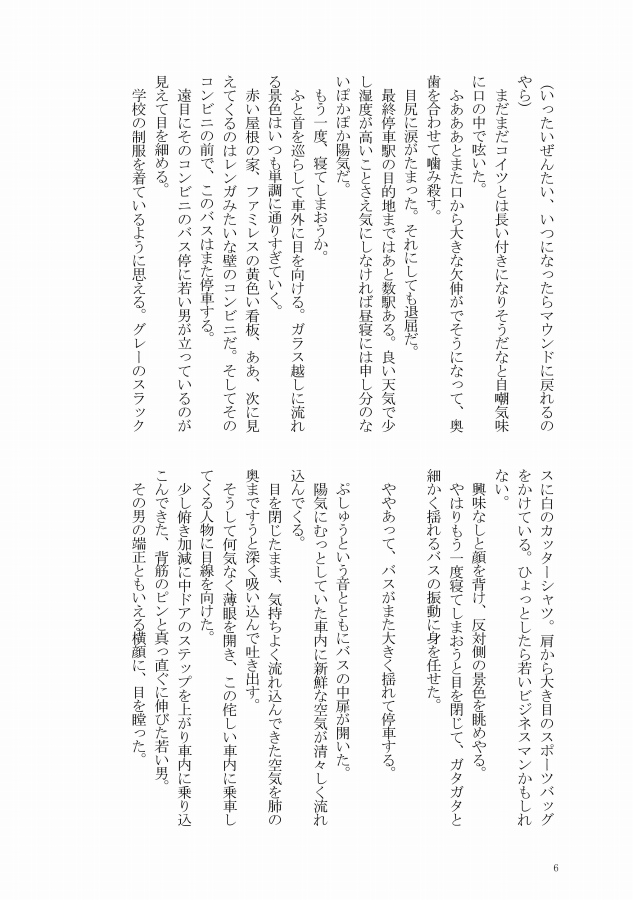 (いったいぜんたい、いつになったらマウンドに戻れるの
やら)
まだまだコイツとは長い付きになりそうだなと自嘲気味
に口の中で呟いた。
ふあああとまた口から大きな欠伸がでそうになって、奥
歯を合わせて噛み殺す。
目尻に涙がたまった。それにしても退屈だ。
最終停車駅の目的地まではあと数駅ある。良い天気で少
し湿度が高いことさえ気にしなければ昼寝には申し分のな
いぽかぽか陽気だ。
もう一度、寝てしまおうか。
ふと首を巡らして車外に目を向ける。ガラス越しに流れ
る景色はいつも単調に通りすぎていく。
赤い屋根の家、ファミレスの黄色い看板、ああ、次に見
えてくるのはレンガみたいな壁のコンビニだ。そしてその
コンビニの前で、このバスはまた停車する。
遠目にそのコンビニのバス停に若い男が立っているのが
見えて目を細める。
学校の制服を着ているように思える。グレーのスラック
スに白のカッターシャツ。肩から大き目のスポーツバッグ
をかけている。ひょっとしたら若いビジネスマンかもしれ
ない。
興味なしと顔を背け、反対側の景色を眺めやる。
やはりもう一度寝てしまおうと目を閉じて、ガタガタと
細かく揺れるバスの振動に身を任せた。
ややあって、バスがまた大きく揺れて停車する。
ぷしゅうという音とともにバスの中扉が開いた。
陽気にむっとしていた車内に新鮮な空気が清々しく流れ
込んでくる。
目を閉じたまま、気持ちよく流れ込んできた空気を肺の
奥まですうと深く吸い込んで吐き出す。
そうして何気なく薄眼を開き、この侘しい車内に乗車し
てくる人物に目線を向けた。
少し俯き加減に中ドアのステップを上がり車内に乗り込
こんできた、背筋のピンと真っ直ぐに伸びた若い男。
その男の端正ともいえる横顔に、目を瞠った。
6